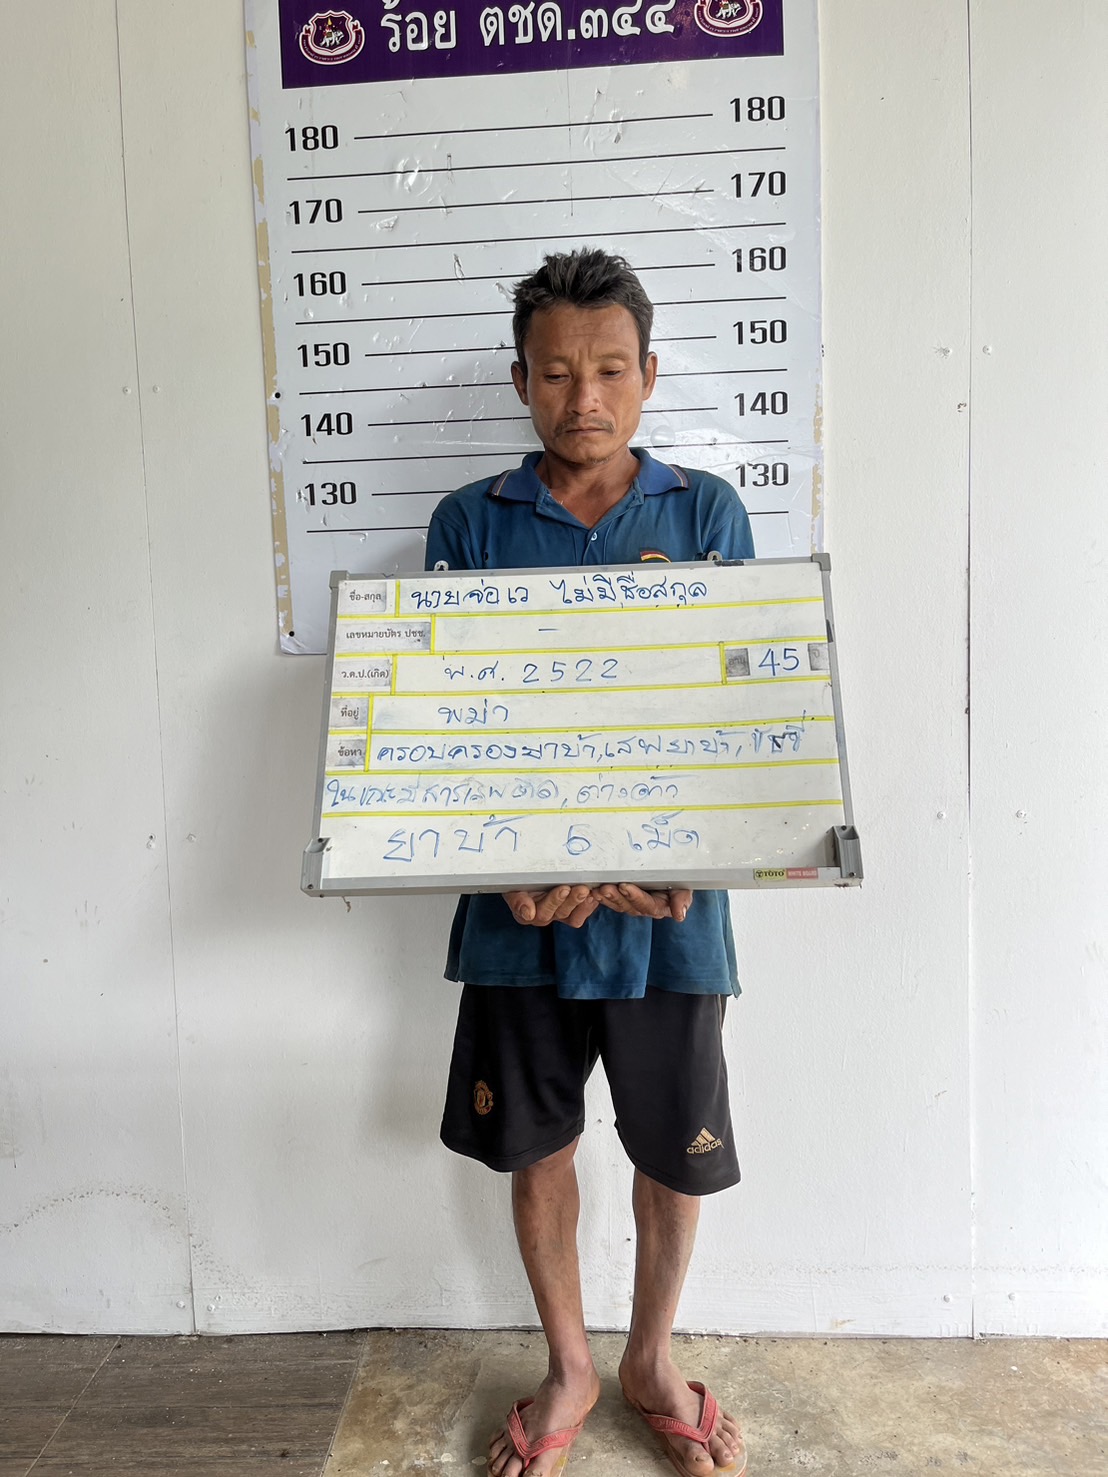 ร้อย ตชด.๓๔๔
180 180
170 170
160 160
150 150
140 140
130 130
ชื่อ-สกุล นายจ่อเว ไม่มีชื่อสกุล
เลขหมายบัตร ปชช. -
ว.ด.ป.(เกิด) พ.ศ. 2522 45
ที่อยู่ พม่า
ข้อหา ครอบครองยาบ้า,เสพยาบ้า, ขับขี่
ในขณะมีสารเสพติด, ต่างด้าว
ยาบ้า 6 เม็ด
TOTO WHITE BOARD
adidas